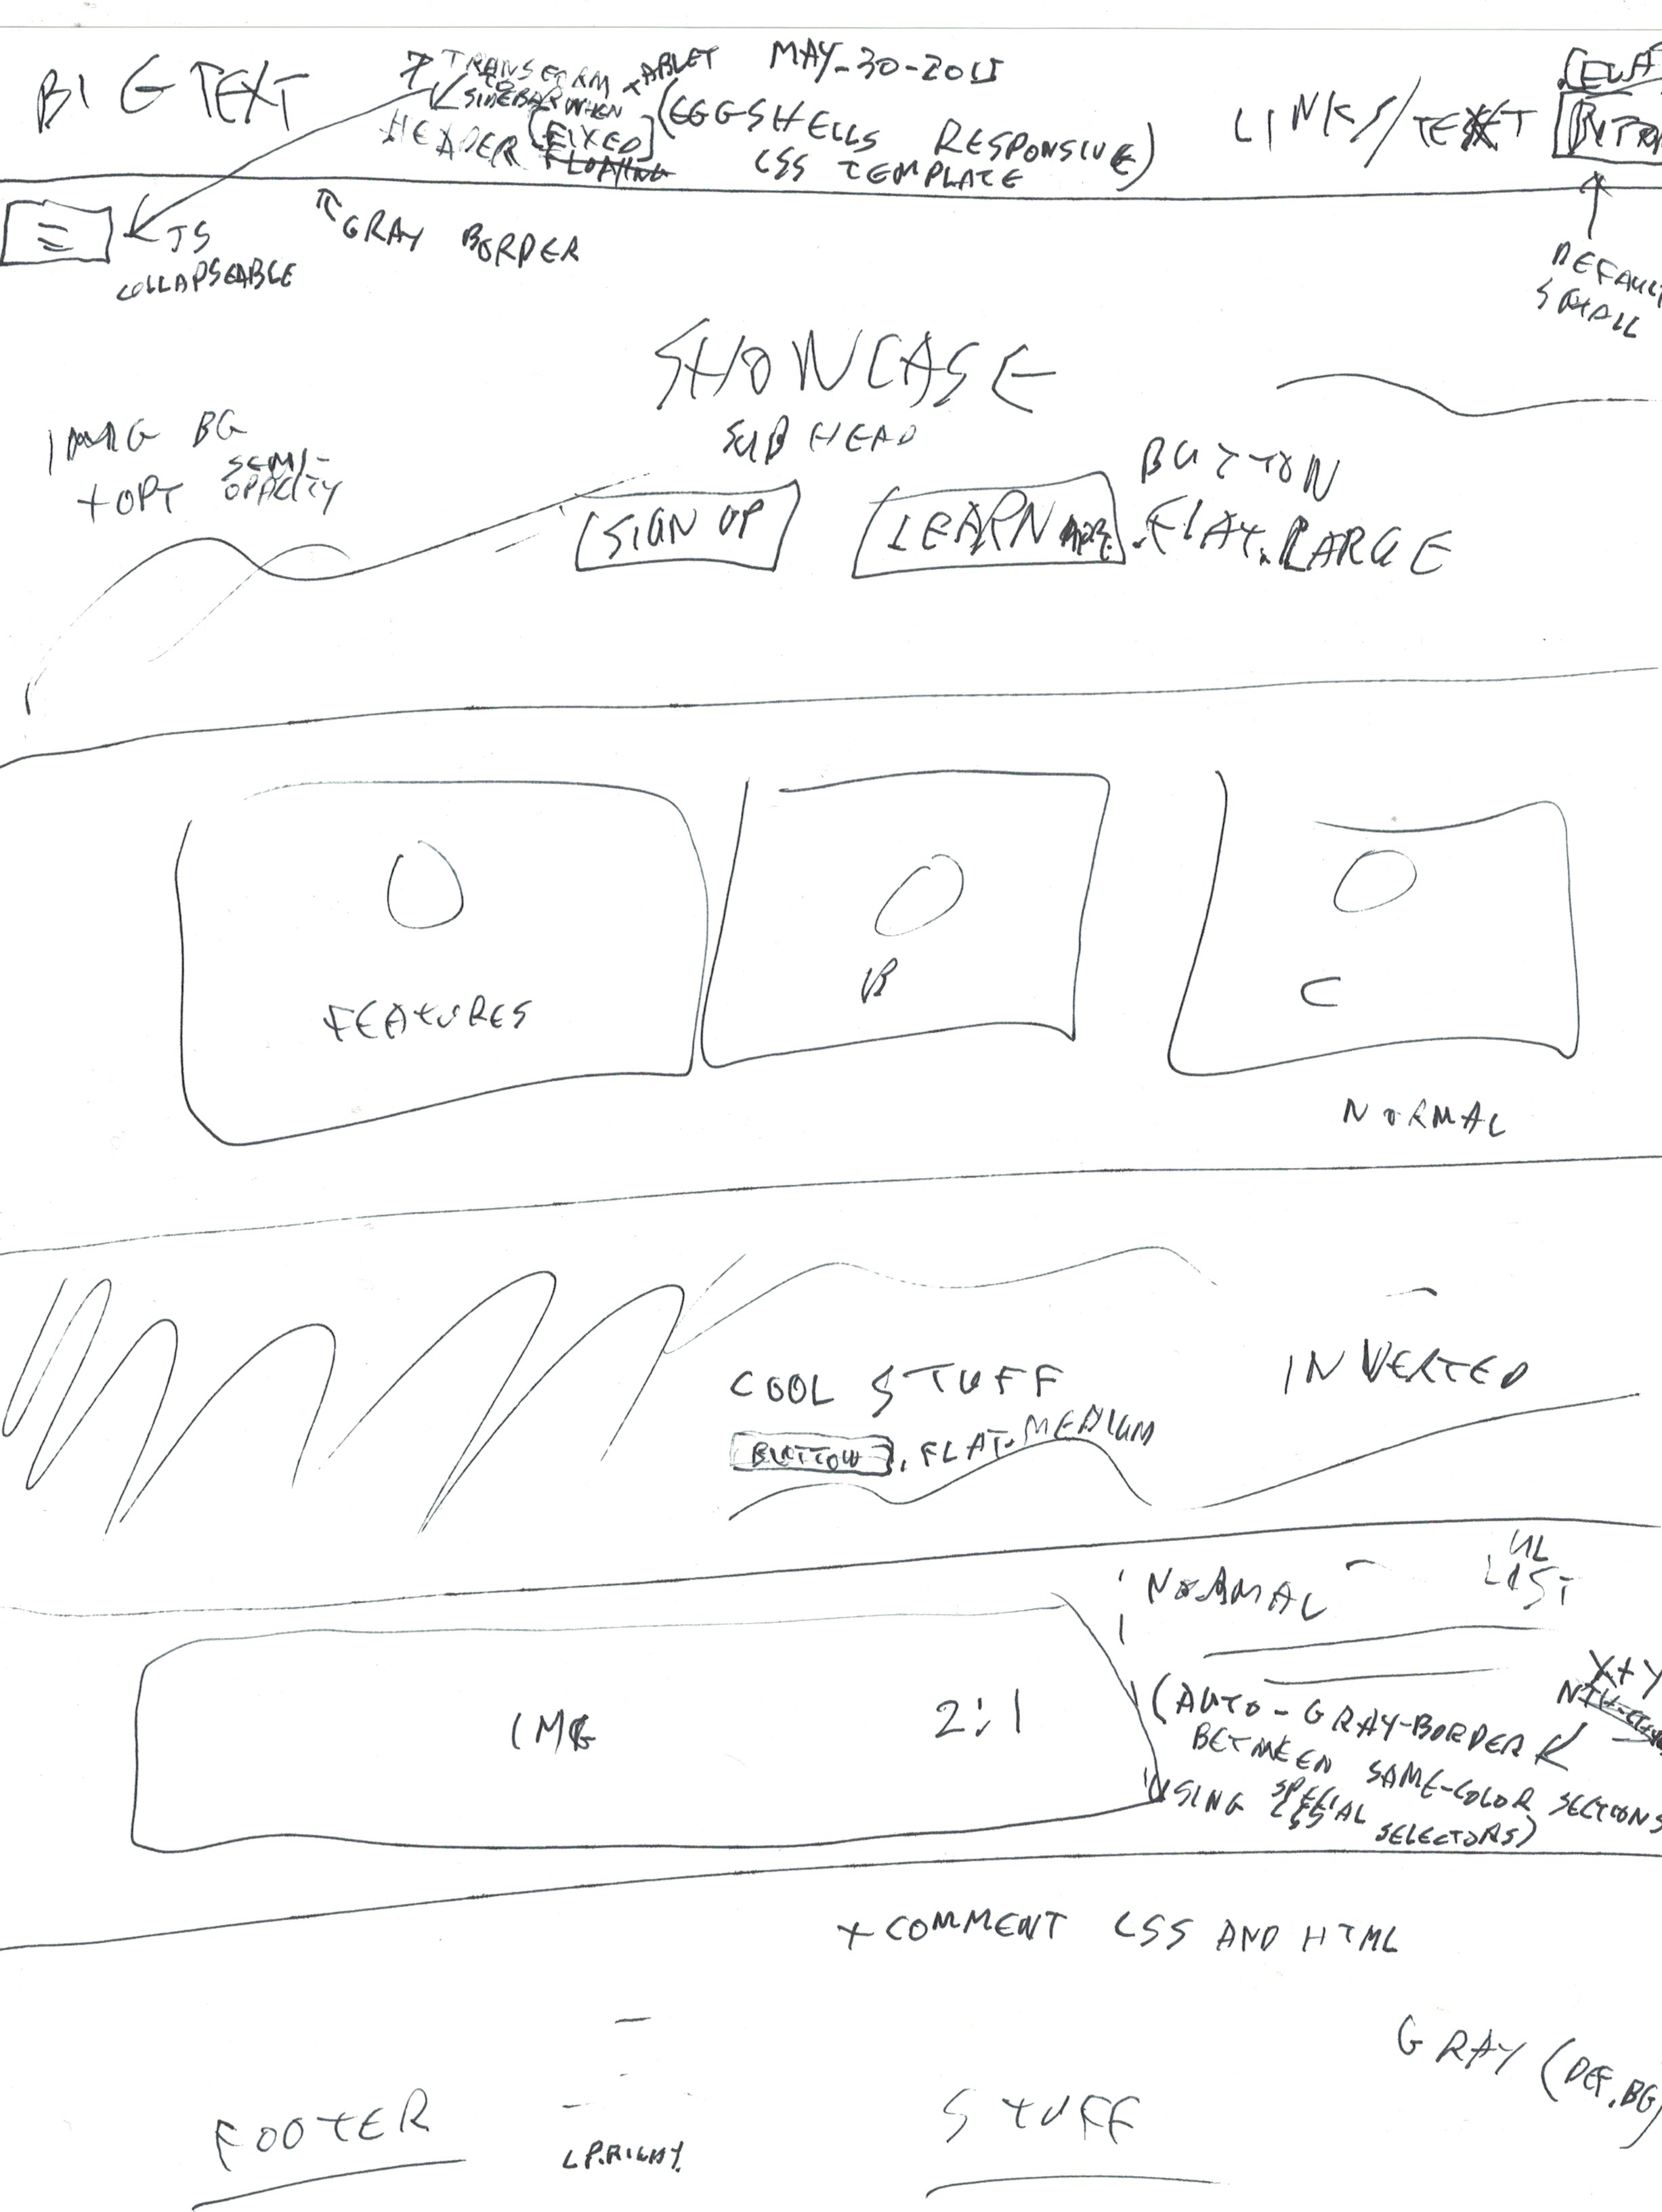 BIG TEXT
TRANSFORM TABLET
TO SIDEBAR WHEN
MAY-30-2015
HEADER [FIXED]
FLOATING
(EGGSHELLS RESPONSIVE
CSS TEMPLATE)
LINKS/TEXT
JS
COLLAPSEABLE
GRAY BORDER
DEFAULT
SMALL
SHOWCASE
SUBHEAD
IMG BG
+ OPT SEMI-
OPACITY
SIGN UP
LEARN MORE
BUTTON
.FLAT.LARGE
FEATURES
B
C
NORMAL
COOL STUFF
INVERTED
BUTTON .FLAT.MEDIUM
NORMAL
UL
LIST
IMG 2:1
X+Y
(AUTO-GRAY-BORDER
BETWEEN SAME-COLOR SECTIONS
USING SPECIAL
CSS
SELECTORS)
+ COMMENT CSS AND HTML
GRAY (DEF.BG)
FOOTER
STUFF